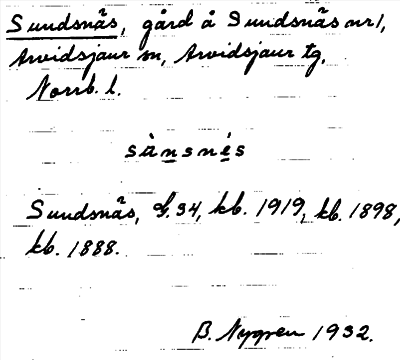 Sundsnäs, gård å Sundsnäs nr 1,
Arvidsjaur sn, Arvidsjaur tg,
Norrb. l.
sànsnés
Sundsnäs, 34, kb. 1919, kb. 1898,
kb. 1888.
B. Nygren 1932.